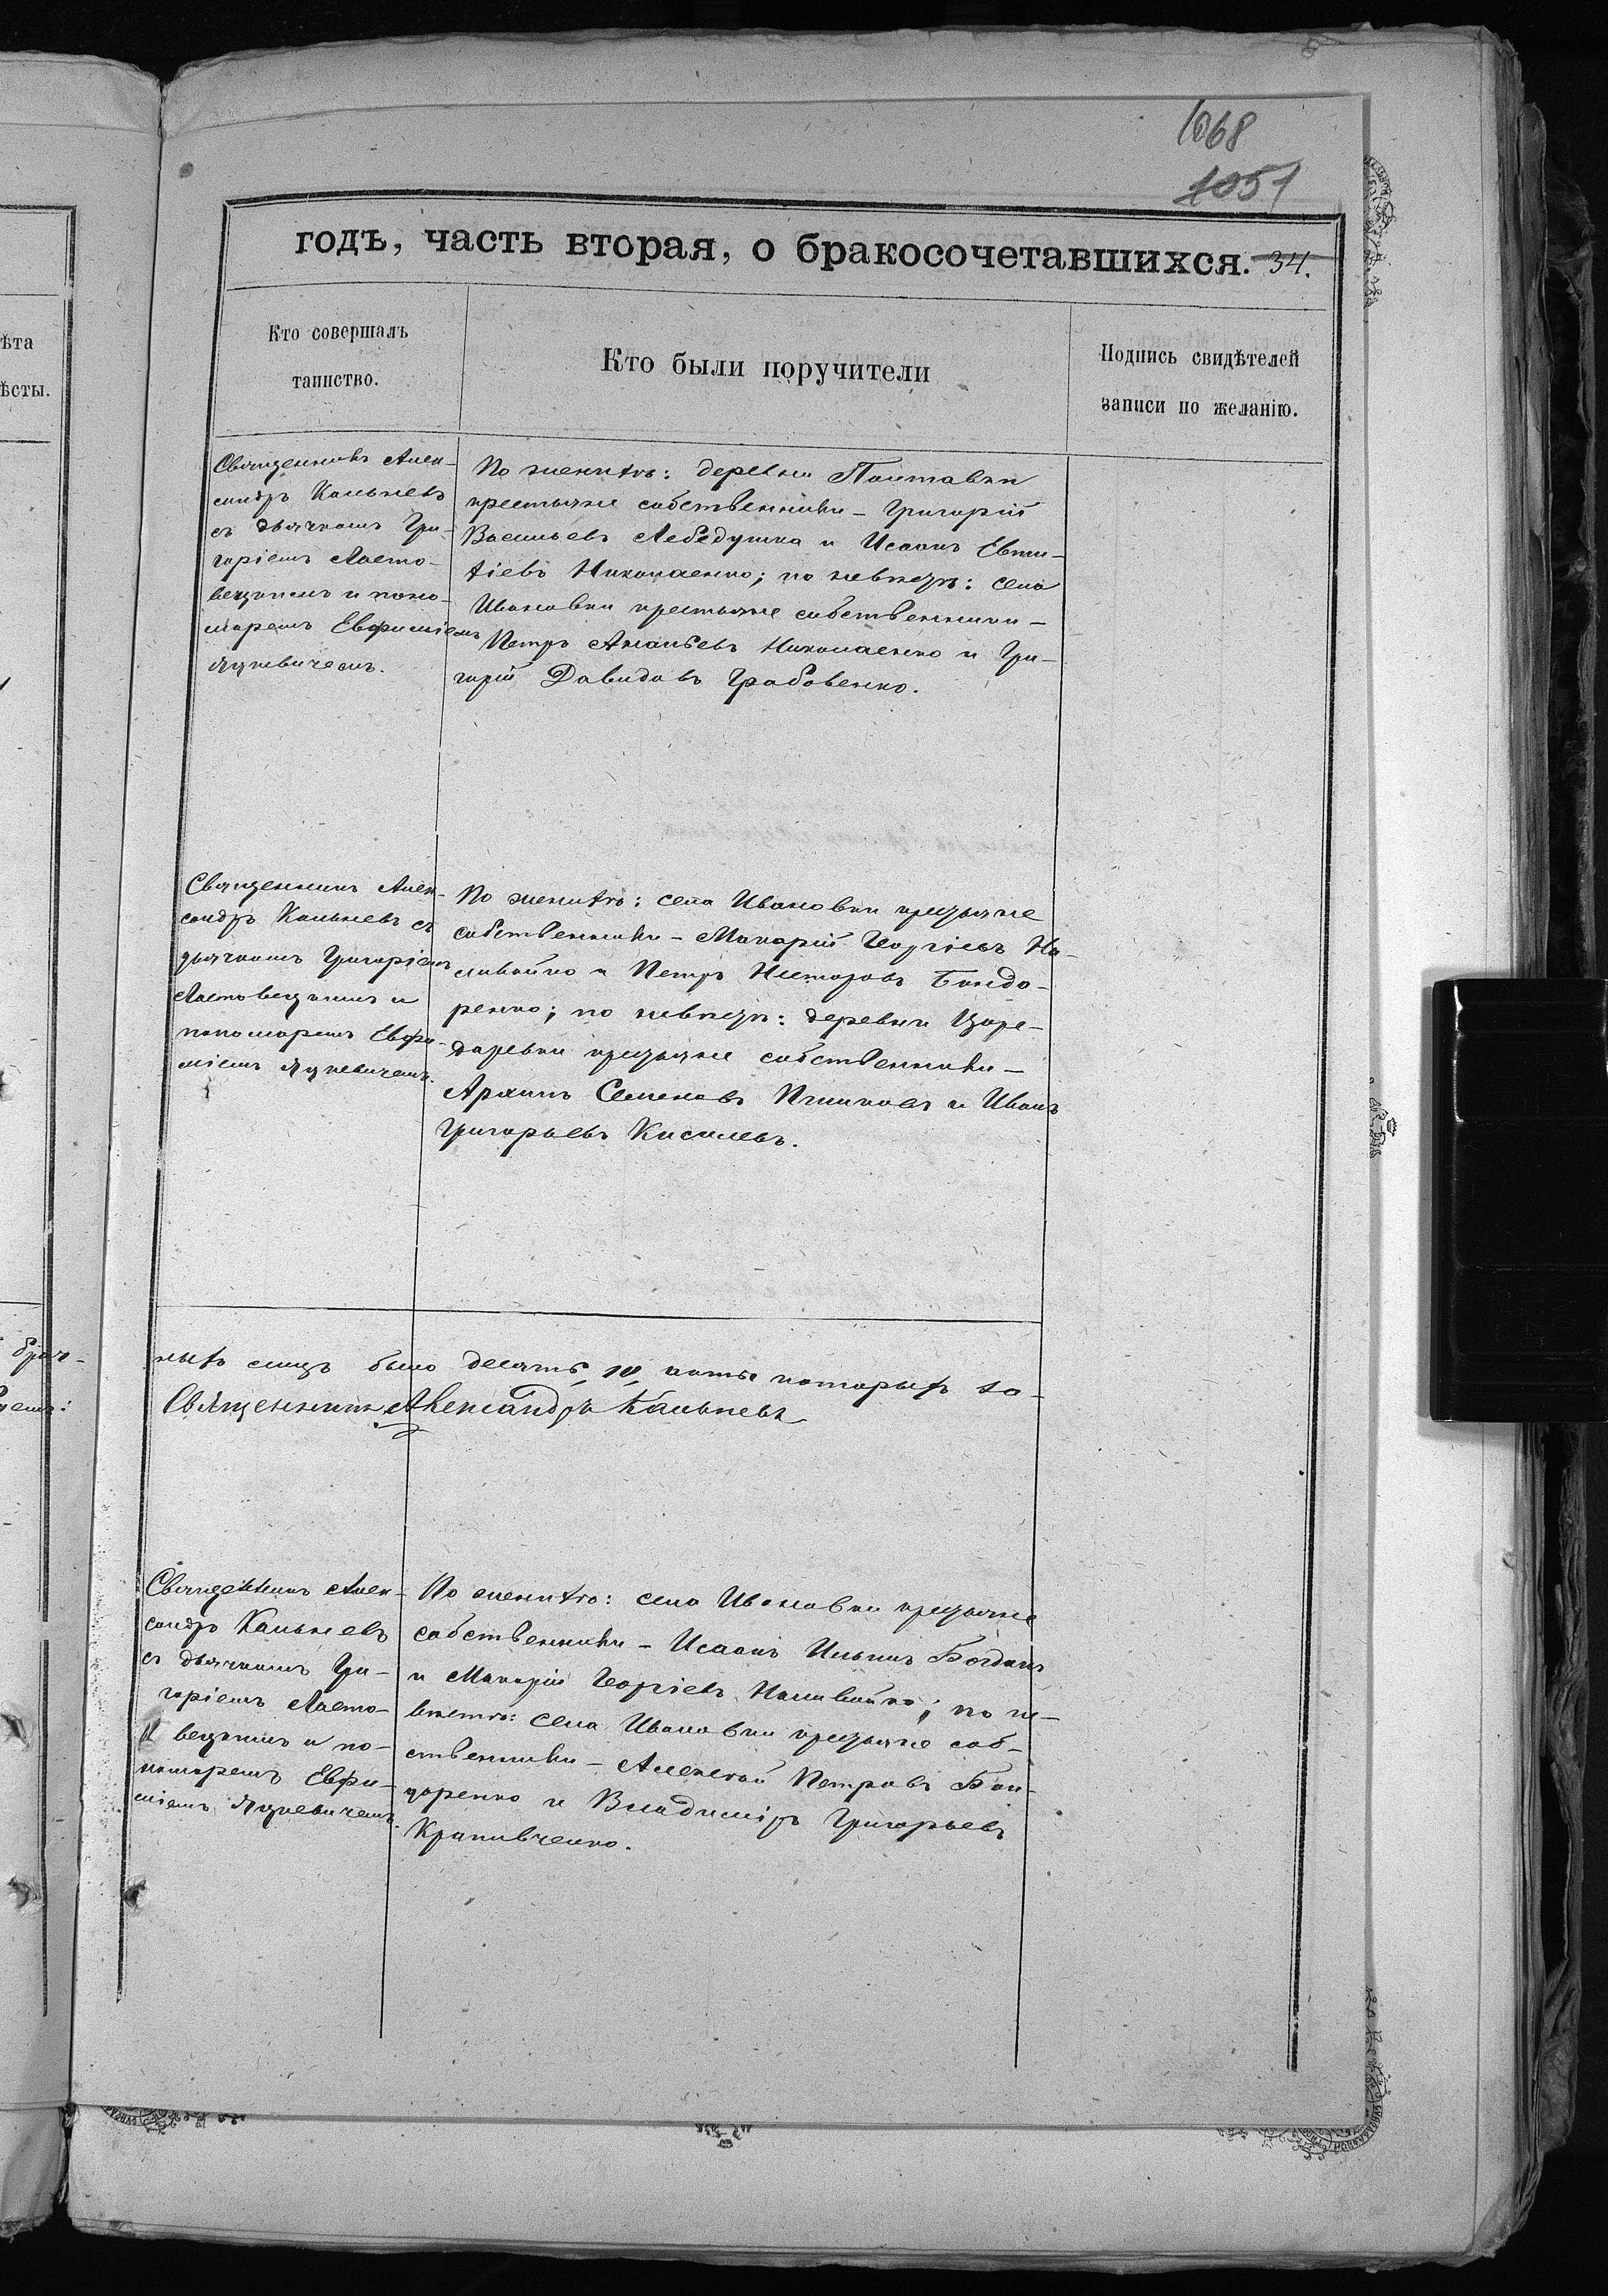 1068
1051
годъ, часть вторая, о бракосочетавшихся. 34.
ѣта
ѣсты.
Кто совершалъ
таинство.
Кто были поручители
Подпись свидѣтелей
записи по желанію.
Священникъ Алек-
сандръ Кальневъ
съ дьячкомъ Гри-
горіемъ Ласто-
вецкимъ и поно-
маремъ Евфиміемъ
Яцкевичемъ.
По женихѣ: деревни Полтавки
крестьяне собственники - Григорій
Васильевъ Лебедушка и Исаакъ Евти-
хіевъ Николаенко; по невѣстѣ: села
Ивановки крестьяне собственники -
Петръ Ананьевъ Николаенко и Гри-
горій Давидовъ Грабовенко.
Священникъ Алек-
сандръ Кальневъ съ
дьячкомъ Григоріемъ
Ластовецкимъ и
пономаремъ Евфи-
міемъ Яцкевичемъ.
По женихѣ: села Ивановки крестьяне
собственники - Макарій Георгіевъ На-
ливайко и Петръ Несторовъ Бонда-
ренко; по невѣстѣ: деревни Царе-
даровки крестьяне собственники -
Архипъ Семеновъ и Иванъ
Григорьевъ Киселевъ.
брач-
ныхъ лицъ было десять, 10, актъ которыхъ за-
Священникъ Александръ Кальневъ
Священникъ Алек-
сандръ Кальневъ
съ дьячкомъ Гри-
горіемъ Ласто-
вецкимъ и по-
номаремъ Евфи-
міемъ Яцкевичемъ.
По женихѣ: села Ивановки крестьяне
собственники - Исаакъ Ильинъ Богданъ
и Макарій Георгіевъ Наливайко; по не-
вѣстѣ: села Ивановки крестьяне соб-
ственники - Алексѣй Петровъ Бон-
даренко и Владиміръ Григорьевъ
Крапивченко.